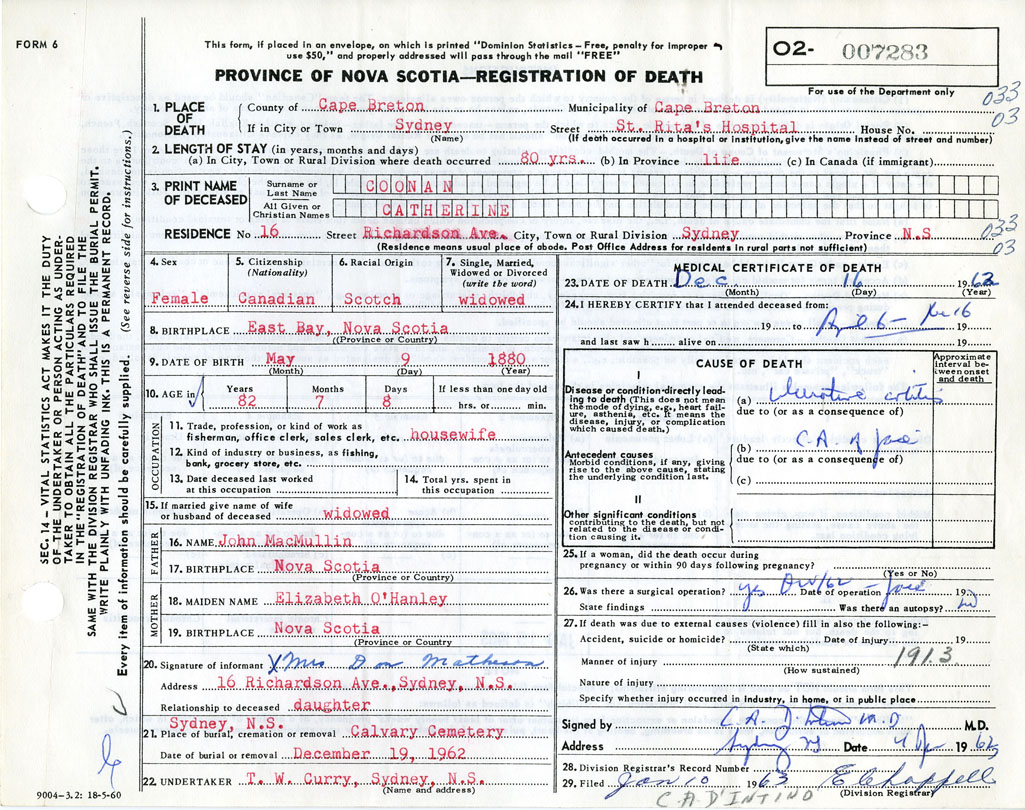 FORM 6
This form, if placed in an envelope, on which is printed "Dominion Statistics – Free, penalty for improper
use $50," and properly addressed will pass through the mail "FREE"
PROVINCE OF NOVA SCOTIA—REGISTRATION OF DEATH
02- 007283
For use of the Department only
033
03
1. PLACE OF DEATH
County of Cape Breton Municipality of Cape Breton
If in City or Town Sydney Street St. Rita's Hospital House No.
(Name) (If death occurred in a hospital or institution, give the name instead of street and number)
2. LENGTH OF STAY (in years, months and days)
(a) In City, Town or Rural Division where death occurred 80 yrs. (b) In Province life (c) In Canada (if immigrant)
3. PRINT NAME OF DECEASED
Surname or Last Name COONAN
All Given or Christian Names CATHERINE
RESIDENCE No 16 Street Richardson Ave. City, Town or Rural Division Sydney Province N.S
(Residence means usual place of abode. Post Office Address for residents in rural parts not sufficient)
033
03
4. Sex
Female
5. Citizenship
(Nationality)
Canadian
6. Racial Origin
Scotch
7. Single, Married,
Widowed or Divorced
(write the word)
widowed
8. BIRTHPLACE East Bay, Nova Scotia
(Province or Country)
9. DATE OF BIRTH May 9 1880
(Month) (Day) (Year)
10. AGE in
Years Months Days If less than one day old
82 7 8 hrs. or min.
OCCUPATION
11. Trade, profession, or kind of work as
fisherman, office clerk, sales clerk, etc. housewife
12. Kind of industry or business, as fishing,
bank, grocery store, etc.
13. Date deceased last worked
at this occupation
14. Total yrs. spent in
this occupation
15. If married give name of wife
or husband of deceased widowed
FATHER
16. NAME John MacMullin
17. BIRTHPLACE Nova Scotia
(Province or Country)
MOTHER
18. MAIDEN NAME Elizabeth O'Hanley
19. BIRTHPLACE Nova Scotia
(Province or Country
20. Signature of informant X Mrs Don Matheson
Address 16 Richardson Ave., Sydney, N.S.
Relationship to deceased daughter
Sydney, N.S.
21. Place of burial, cremation or removal Calvary Cemetery
Date of burial or removal December 19, 1962
22. UNDERTAKER T. W. Curry, Sydney, N.S.
(Name and address)
9004–3.2: 18-5-60
SEC. 14 – VITAL STATISTICS ACT MAKES IT THE DUTY
OF THE UNDERTAKER OR PERSON ACTING AS UNDER-
TAKER TO OBTAIN ALL THE PARTICULARS REQUIRED
IN THE "REGISTRATION OF DEATH" AND TO FILE THE
SAME WITH THE DIVISION REGISTRAR WHO SHALL ISSUE THE BURIAL PERMIT.
WRITE PLAINLY WITH UNFADING INK. THIS IS A PERMANENT RECORD.
Every item of information should be carefully supplied. (See reverse side for instructions.)
MEDICAL CERTIFICATE OF DEATH
23. DATE OF DEATH Dec 16 1962
(Month) (Day) (Year)
24. I HEREBY CERTIFY that I attended deceased from:
19 to April 6 – Dec 16 19
and last saw h alive on 19
CAUSE OF DEATH
Approximate interval between onset and death
I
Disease or condition directly lead-
ing to death (This does not mean
the mode of dying, e.g., heart fail-
ure, asthenia, etc. It means the
disease, injury, or complication
which caused death.)
(a) Ulcerative colitis
due to (or as a consequence of)
Antecedent causes
Morbid conditions, if any, giving
rise to the above cause, stating
the underlying condition last.
(b) C.A.
due to (or as a consequence of)
(c)
II
Other significant conditions
contributing to the death, but not
related to the disease or condi-
tion causing it.
25. If a woman, did the death occur during
pregnancy or within 90 days following pregnancy?
(Yes or No)
26. Was there a surgical operation? yes Date of operation 19
State findings Was there an autopsy?
27. If death was due to external causes (violence) fill in also the following:–
Accident, suicide or homicide? Date of injury 19
(State which)
Manner of injury 191.3
(How sustained)
Nature of injury
Specify whether injury occurred in industry, in home, or in public place
Signed by C. A. D'Intino M.D M.D.
Address Sydney NS Date 4 1962
28. Division Registrar's Record Number
29. Filed Jan 10 1963 E Chappell
(Division Registrar)
C A D'INTINO